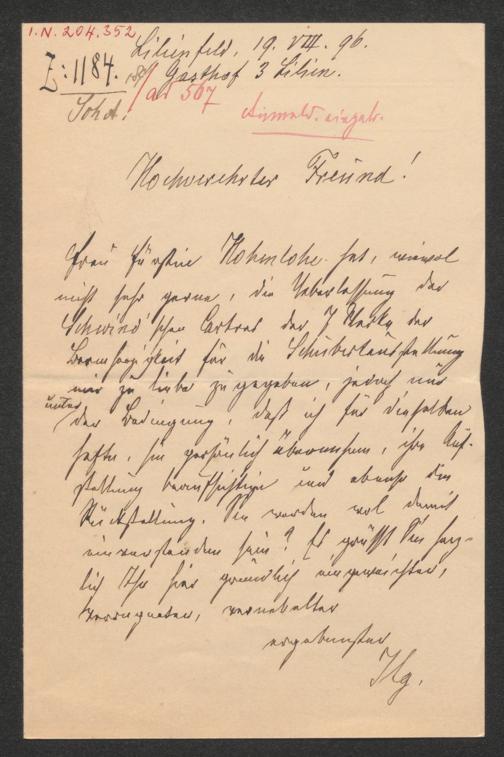 I.N. 204.352
Lilienfeld, 19. VIII. 96.
Z: 1184.
Gasthof 3 Lilien.
Scht.
ad 567
Hochverehrter Freund!
Frau Fürstin Hohenlohe hat, wiewol
nicht sehr gerne, die Ueberlassung der
Schwind'schen Cartons der 7 Werke der
Barmherzigkeit für die Schubertausstellung
mir zu liebe zugegeben, jedoch nur
unter der Bedingung, daß ich für dieselben
hafte, sie persönlich übernehme, ihre Auf-
stellung beaufsichtige und ebenso die
Rückstellung. Sie werden wol damit
einverstanden sein? Es grüßt Sie herz-
lich Ihr hier gründlich eingeweichter,
verregneter, vernebelter
ergebenster
Ilg.